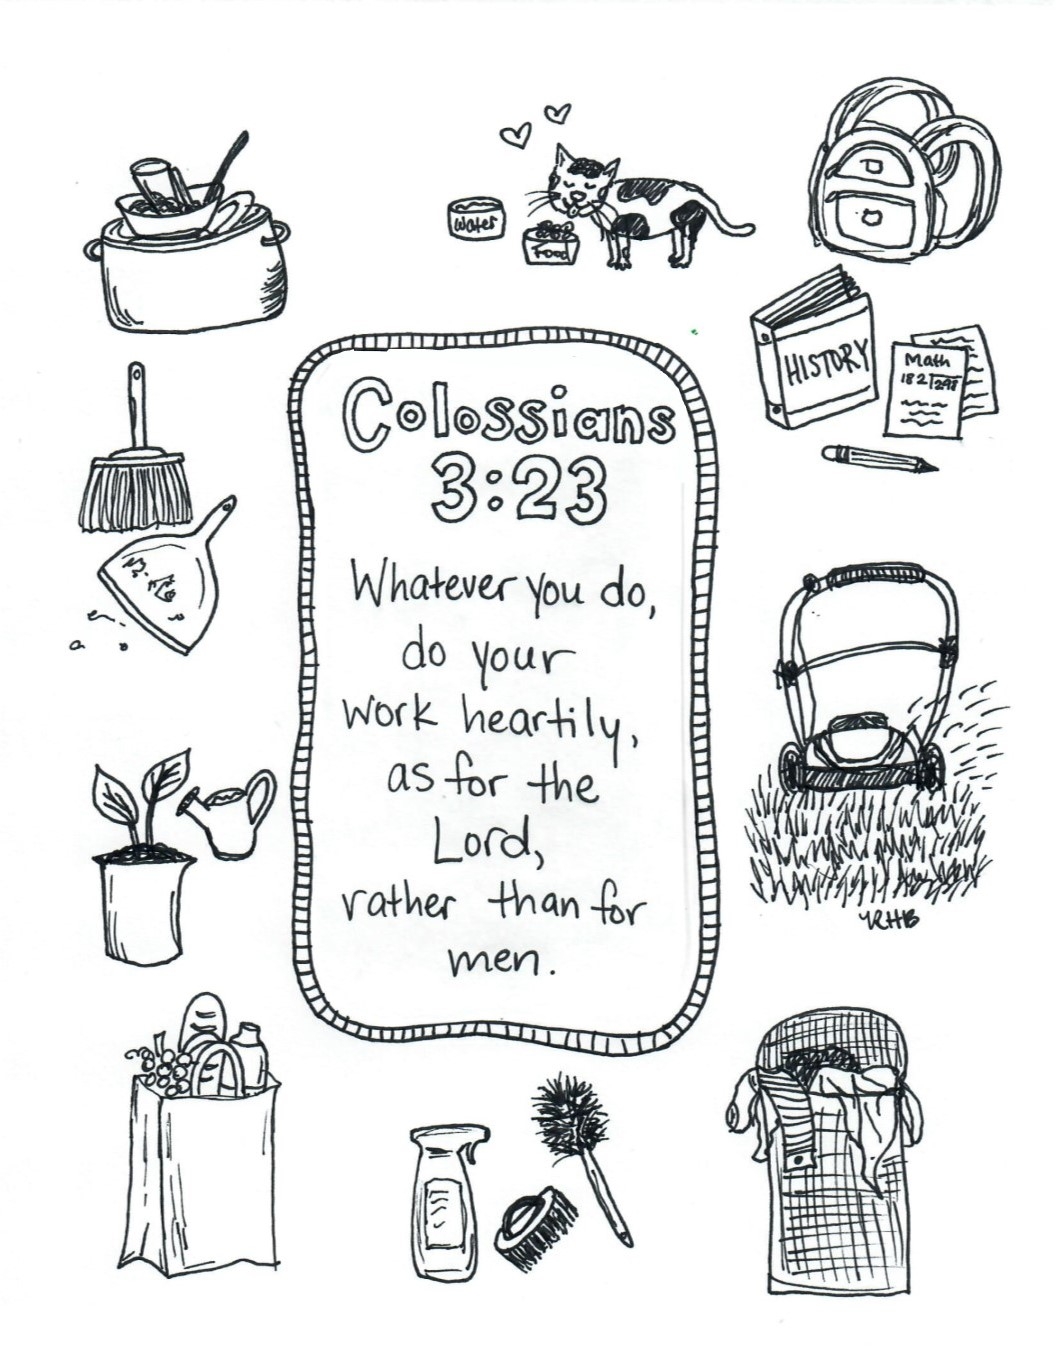 Water
Food
HISTORY
Math
182÷298
Colossians
3:23
Whatever you do,
do your
work heartily,
as for the
Lord,
rather than for
men.
KHB